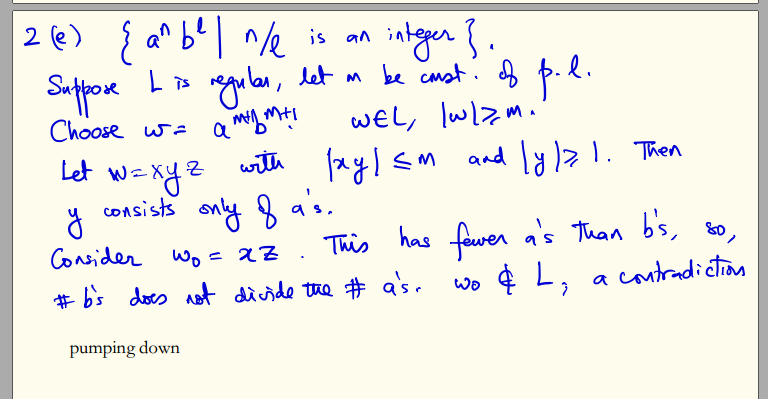 2 (e) { aⁿ bˡ | n/l is an integer }.
Suppose L is regular, let m be const. of p.l.
Choose w = a^{m+1} b^{m+1}. w ∈ L, |w| ≥ m.
Let w = xyz with |xy| ≤ m and |y| ≥ 1. Then
y consists only of a's.
Consider w₀ = xz. This has fewer a's than b's, so,
# b's does not divide the # a's. w₀ ∉ L, a contradiction
pumping down